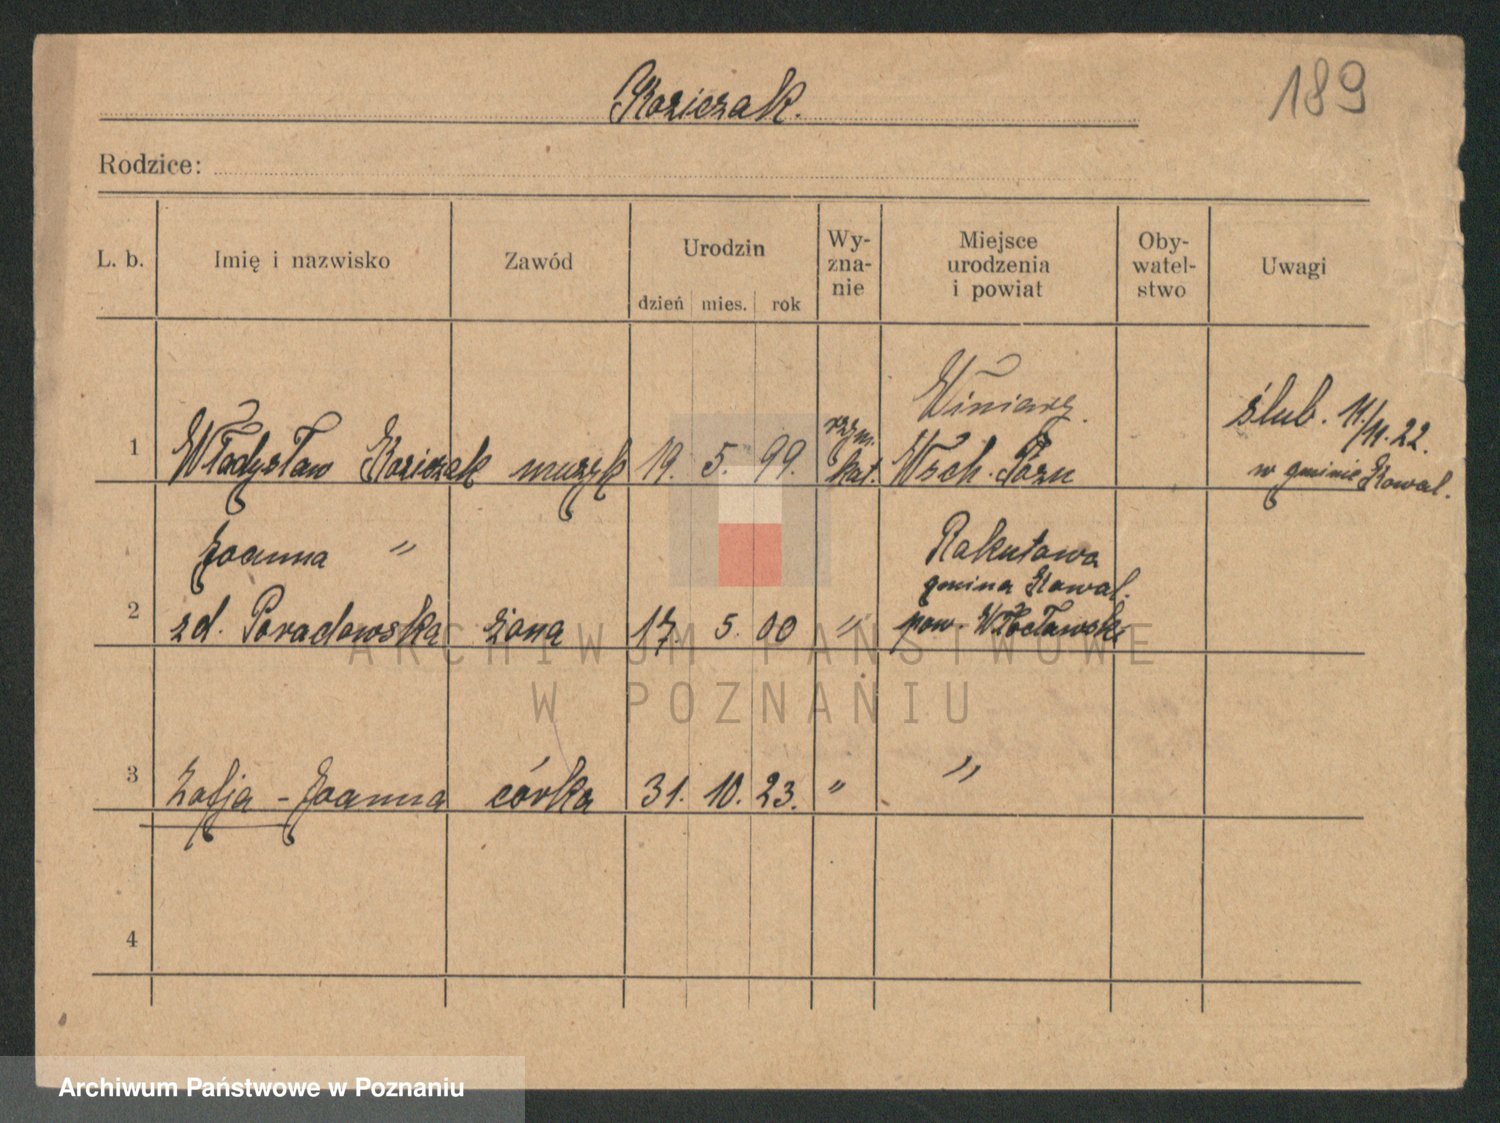 Koziczak.
189
Rodzice:
L. b. Imię i nazwisko Zawód Urodzin Wy-
zna-
nie Miejsce
urodzenia
i powiat Oby-
watel-
stwo Uwagi
dzień mies. rok
Winiary.
ślub. 11/11. 22.
1 Władysław Koziczak muzyk 19. 5. 99. rzym.
kat. Wsch. Pozn
w gminie Kowal.
Joanna "
2 zd. Poradowska żona 17. 5. 00 " Rakutowo
gmina Kowal.
pow. Włocławsk
3 Zofja - Joanna córka 31. 10. 23. " "
4
ARCHIWUM PAŃSTWOWE
W POZNANIU
Archiwum Państwowe w Poznaniu